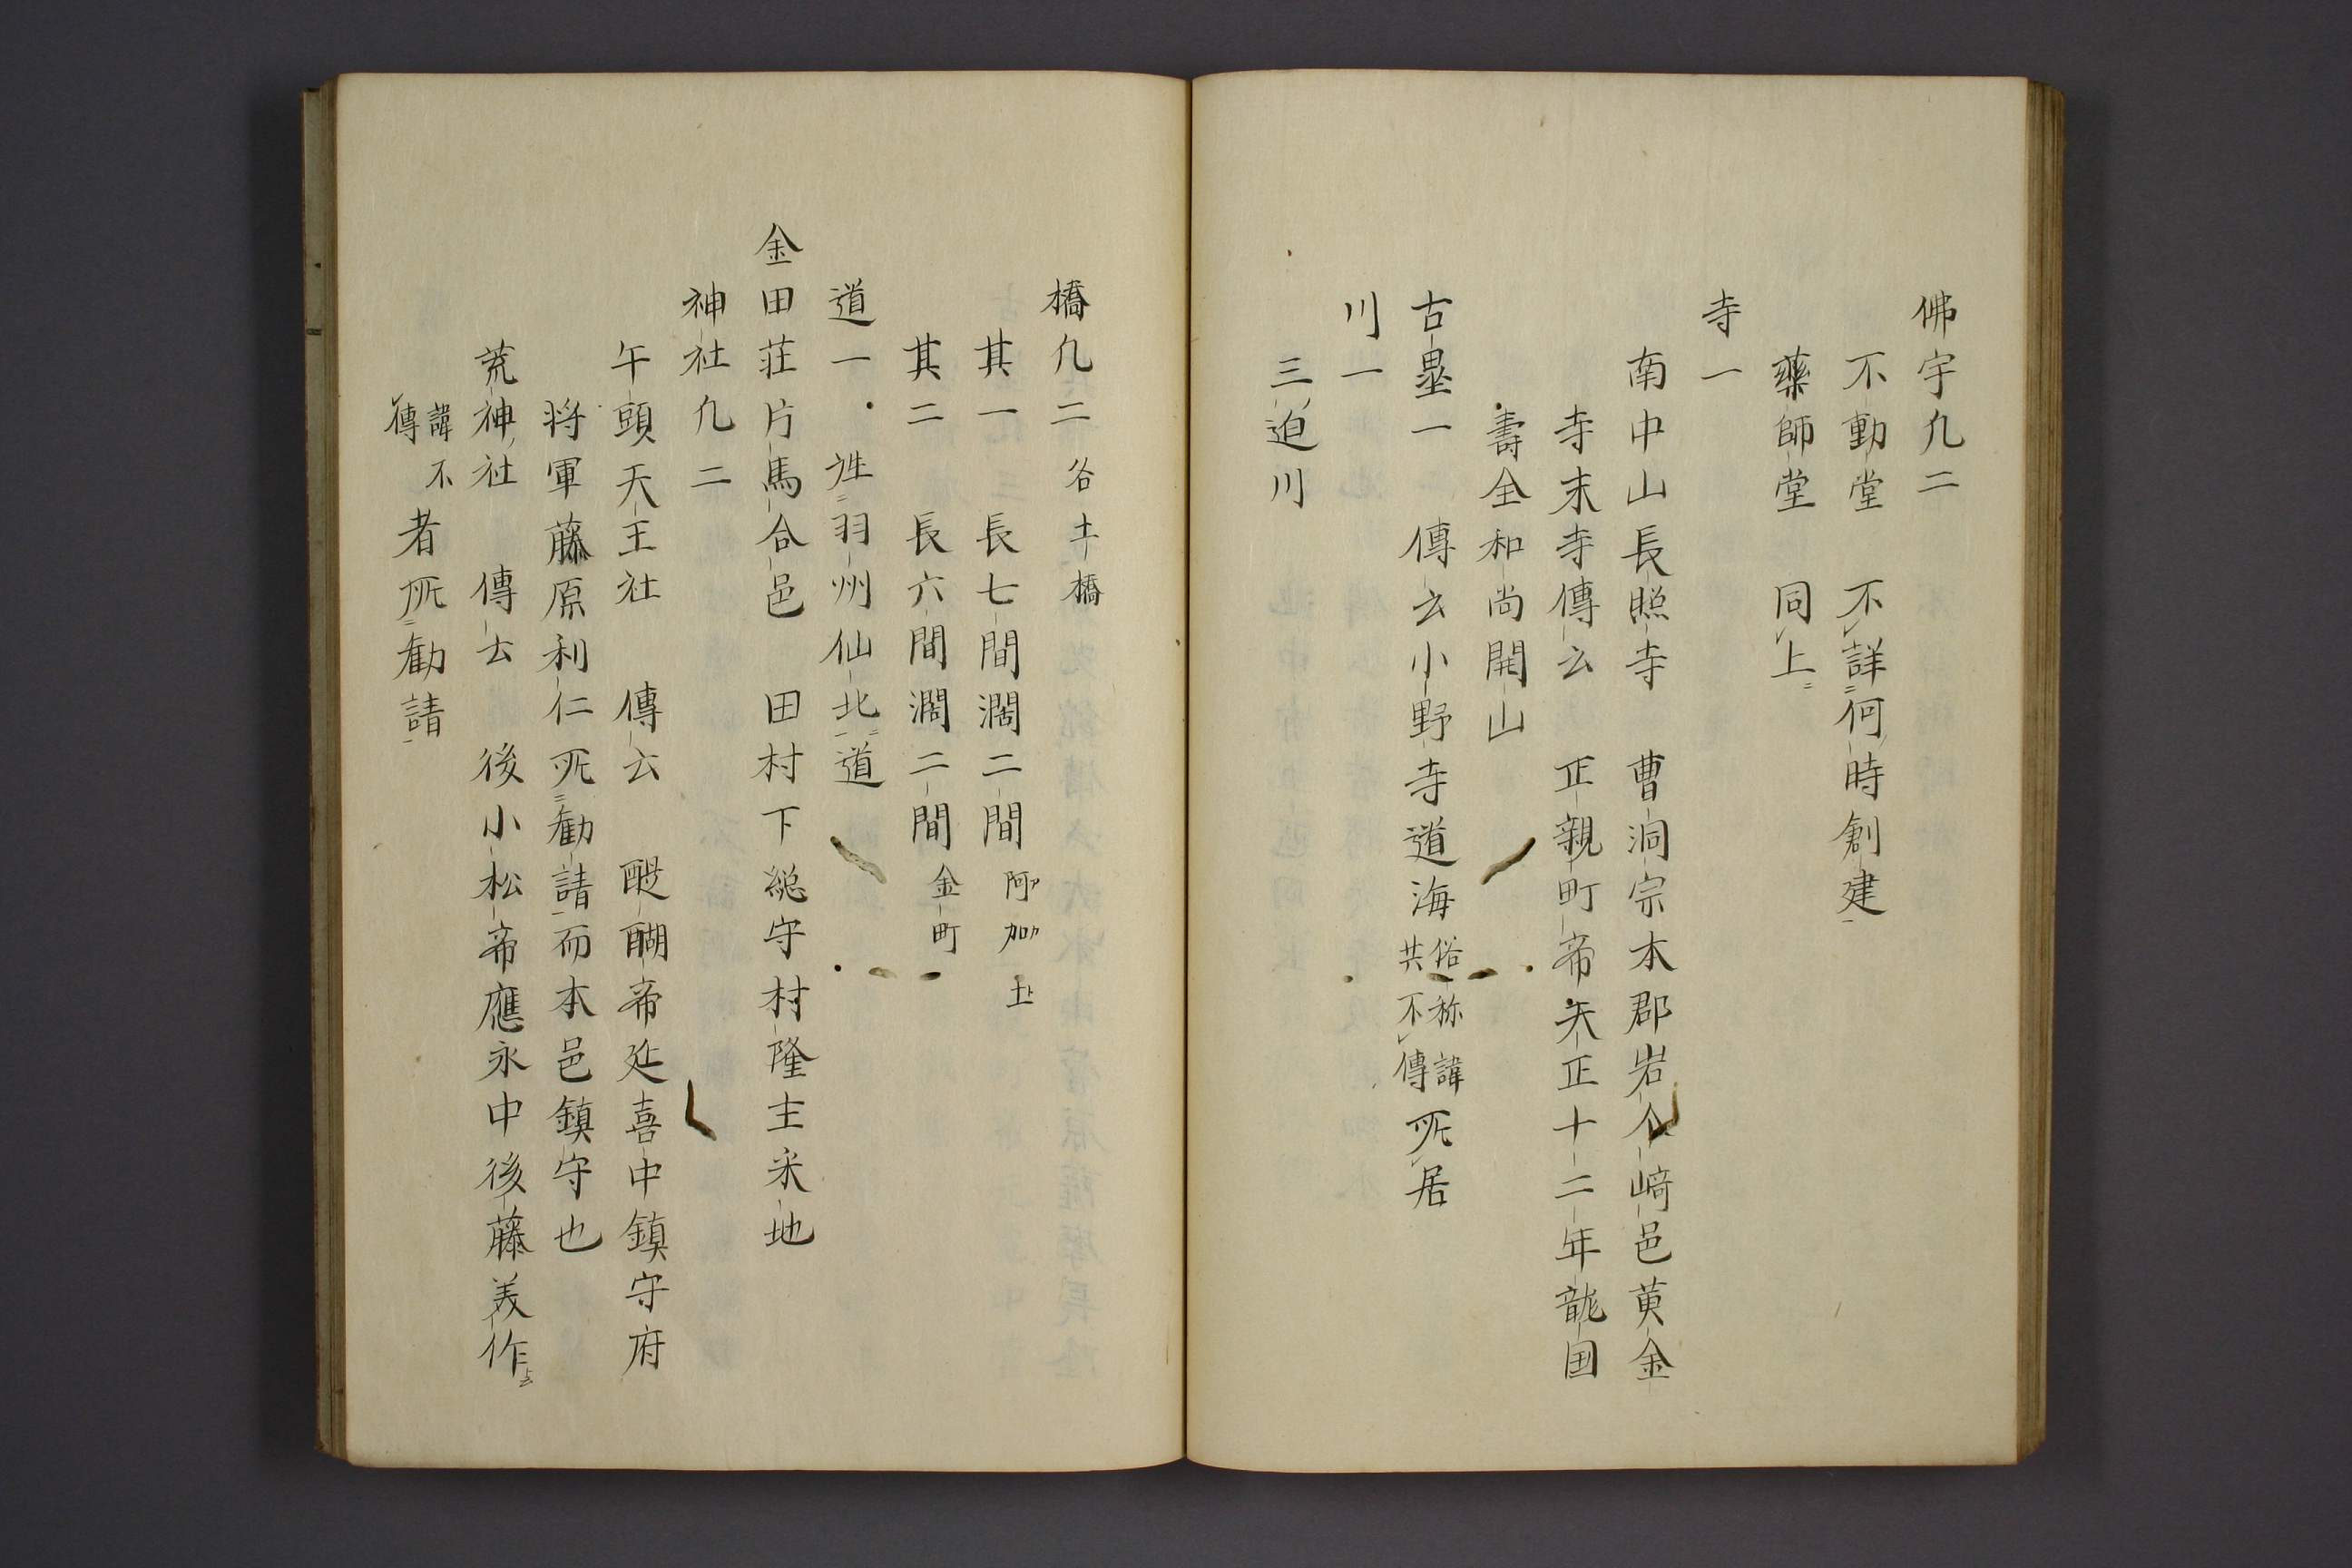 佛宇凡二
不動堂 不詳何時創建
藥師堂 同上
寺一
南中山長照寺 曹洞宗本郡岩个﨑邑黄金
寺末寺傳云 正親町帝天正十二年龍国
壽全和尚開山
古壘一 傳云小野寺道海俗称諱共不傳所居
川一
三迫川
橋凡二各土橋
其一 長七間濶二間
其二 長六間濶二間金町
道一 徃羽州仙北道
金田荘片馬合邑 田村下総守村隆主釆地
神社凡二
午頭天王社 傳云 醍醐帝延喜中鎮守府
将軍藤原利仁所勧請而本邑鎮守也
荒神社 傳云 後小松帝應永中後藤美作
諱不傳者所勧請